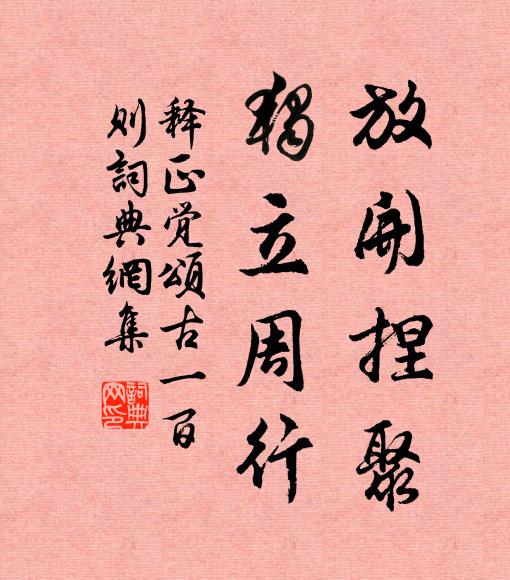 放開捏聚
獨立周行
释正覚頌古一百
则詞典網集
詞典
网印